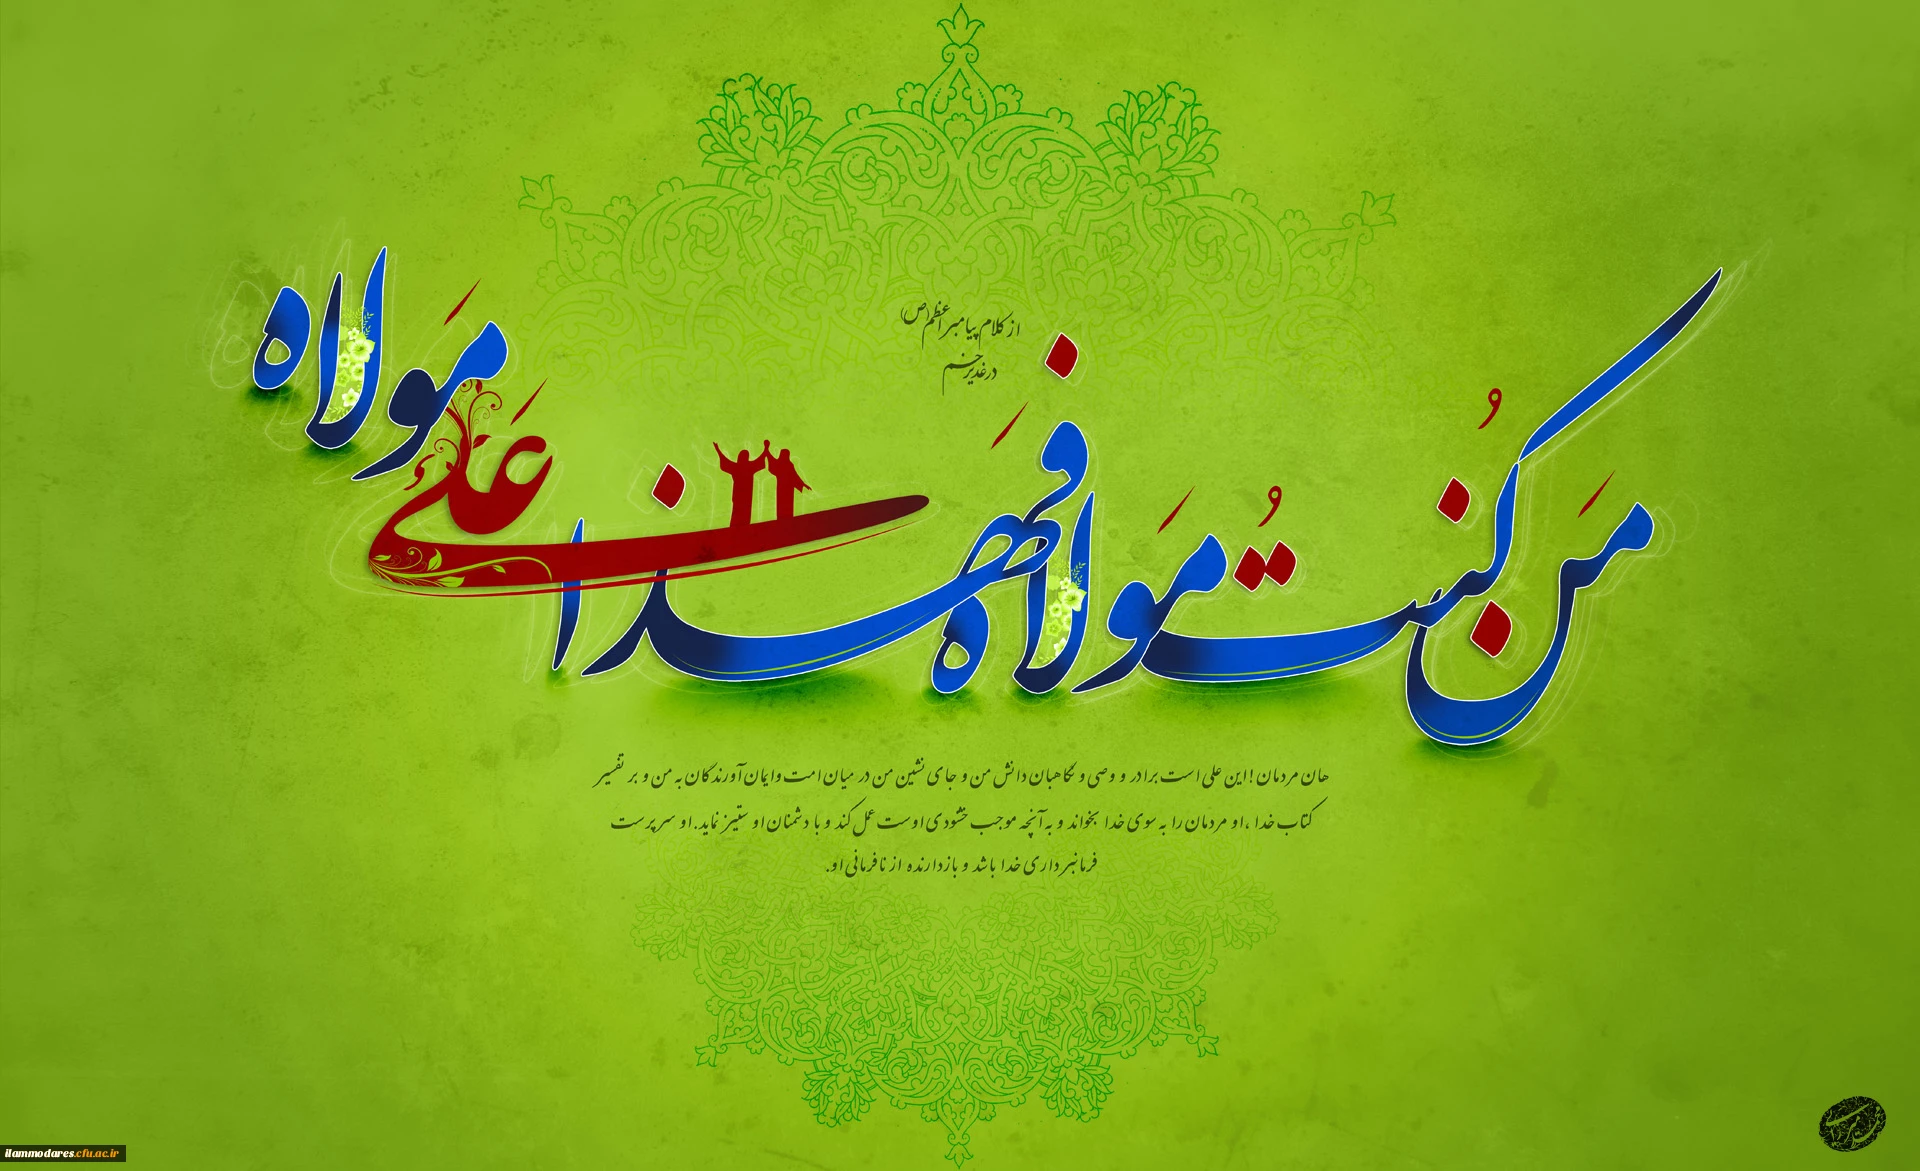 از کلام پیامبر اعظم(ص)
در غدیر خم
مَن کُنتُ مَولاه فَهذا عَلیٌ مَولاه
هان مردمان! این علی است برادر و وصی و نگاهبان دانش من و جای نشین من در میان امت و ایمان آورندگان به من و بر تفسیر
کتاب خدا، او مردمان را به سوی خدا بخواند و به آنچه موجب خشنودی اوست عمل کند و با دشمنان او ستیز نماید. او سرپرست
فرمانبرداری خدا باشد و بازدارنده از نافرمانی او.
ilammodares.cfu.ac.ir